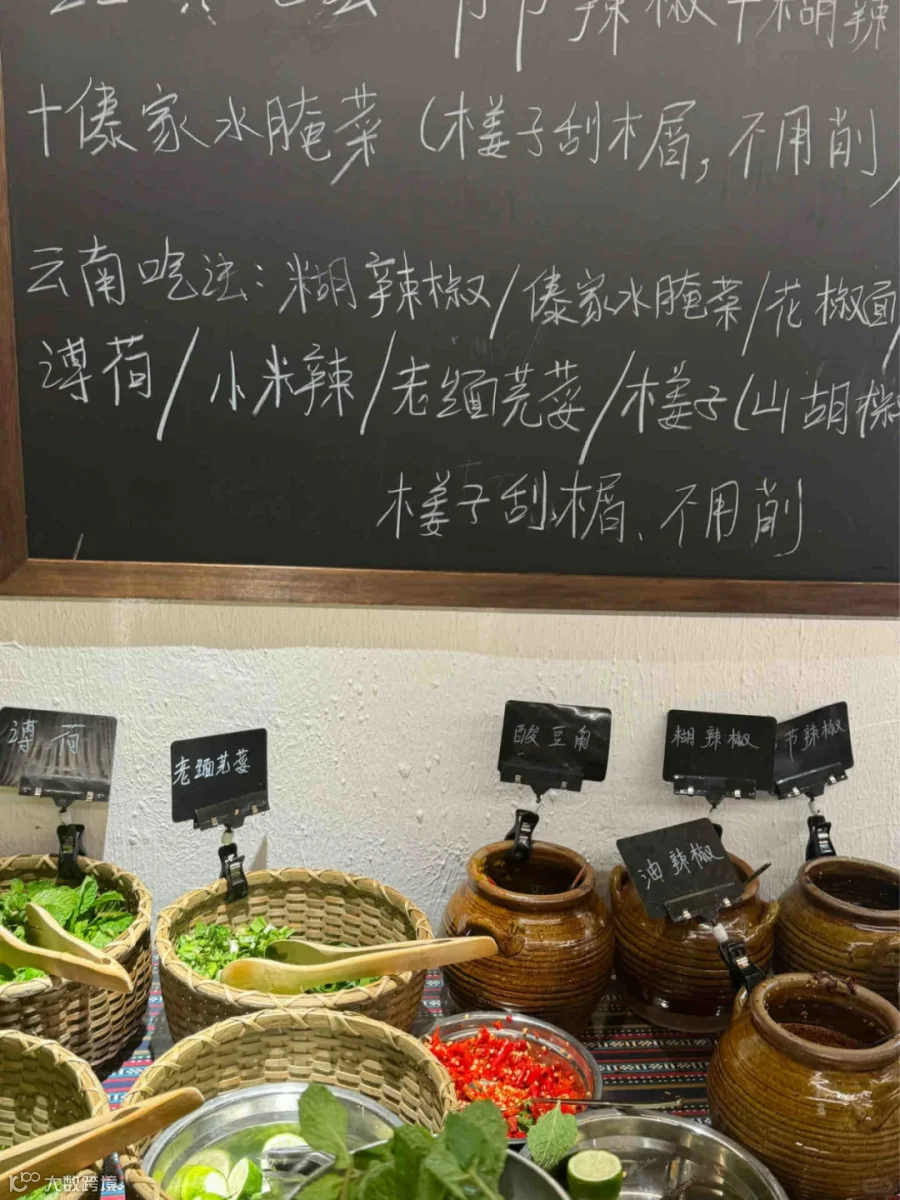 节节辣椒+糊辣
+傣家水腌菜（木姜子刮木屑，不用削）
云南吃法：糊辣椒/傣家水腌菜/花椒面/
薄荷/小米辣/老缅芫荽/木姜子（山胡椒
木姜子刮木屑、不用削
薄荷
老缅芫荽
酸豆角
糊辣椒
节辣椒
油辣椒
大数跨境